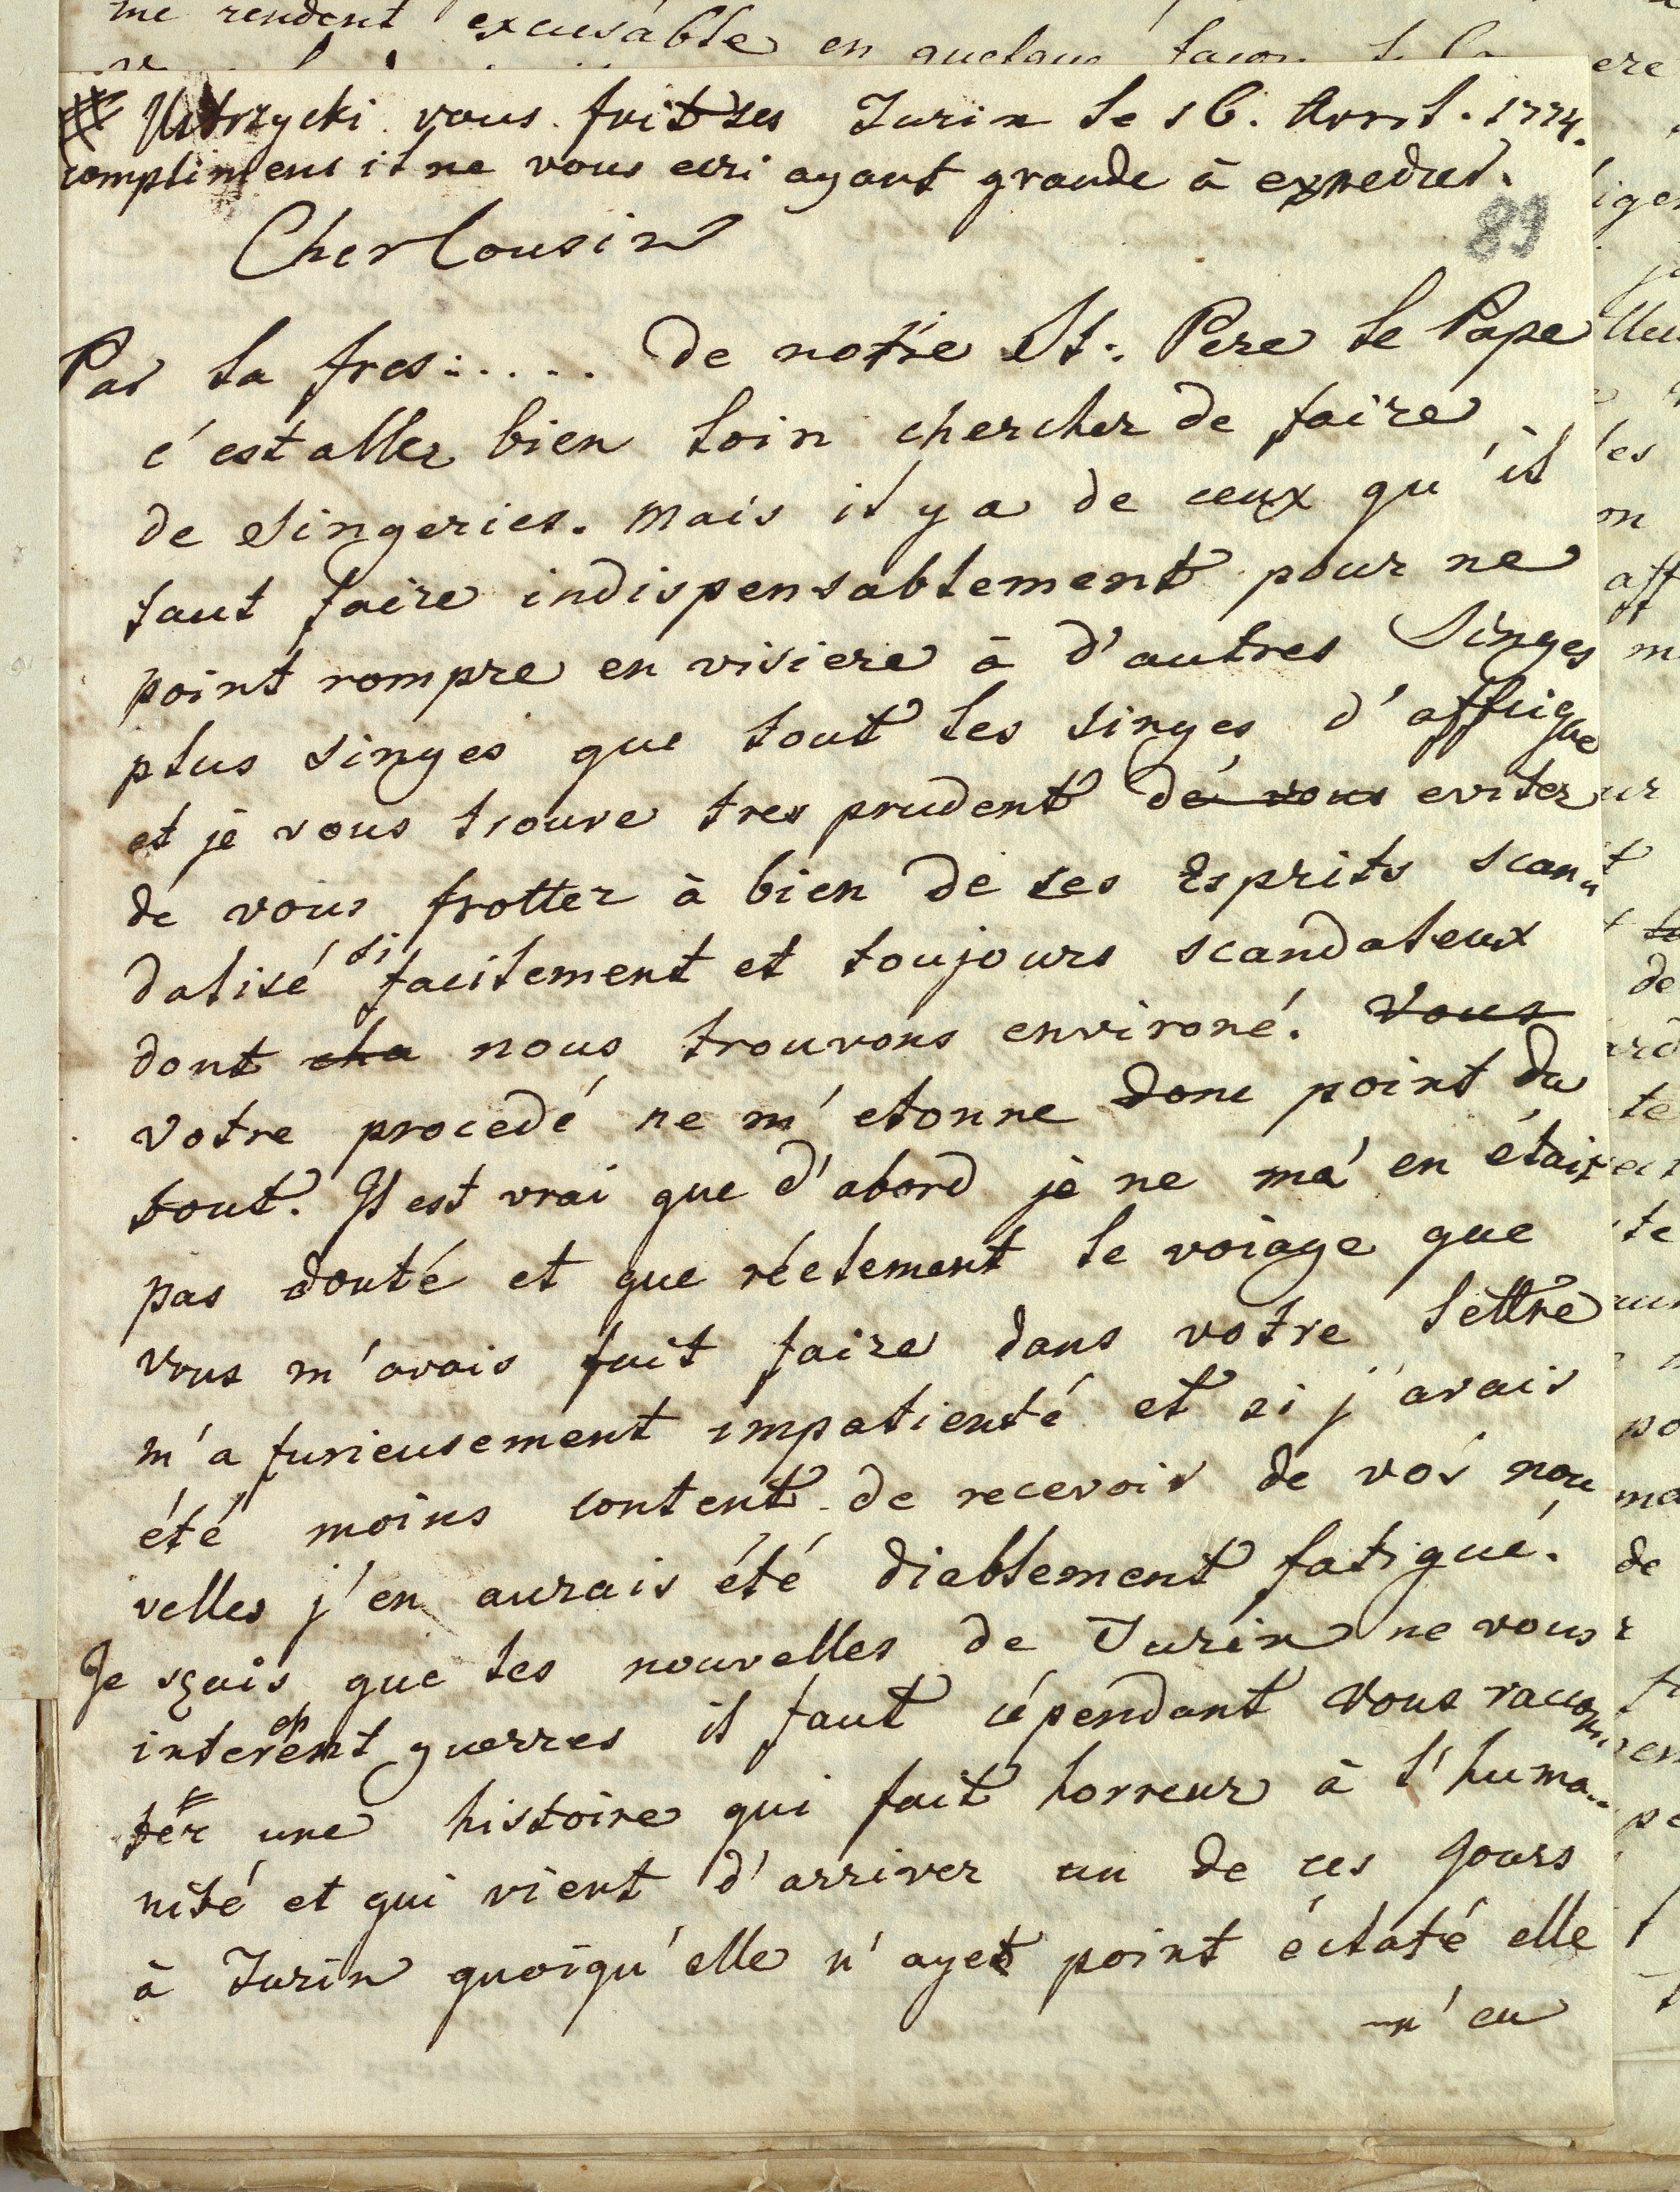 me rendent excusable en quelque
Ustrzycki vous fait ses Turin le 16. Avril. 1774.
complimens il ne vous ecri ayant grande à expedier.
89
Cher Cousin
Par la fres:.... de notre St. Pere le Pape
c'est aller bien loin chercher de faire
de singeries. mais il y a de ceux qu'il
faut faire indispensablement pour ne
point rompre en visiere à d'autres Singes
plus singes que tout les singes d'affrique
et jè vous trouve tres prudent de vous eviter
de vous frotter à bien de ses Esprits scan
dalisé si facilement et toujours scandaleux
dont cha nous trouvons environé. Vous
votre procedé ne m'etonne donc point du
tout. Il est vrai que d'abord jè ne ma'en étaix
pas douté et que réelement le voiage que
vous m'avais fait faire dans votre lettre
m'a furieusement impatienté et si j'avais
été moins content de recevoir de vos nou
velles j'en aurais été diablement fatigué.
Je sçais que les nouvelles de Turin ne vous
interent guerres il faut cépendant vous raccon
ter une histoire qui fait horreur à l'huma..
nité et qui vient d'arriver un de ces jours
à Turin quoiqu'elle n'ayet point éclaté elle
n'en